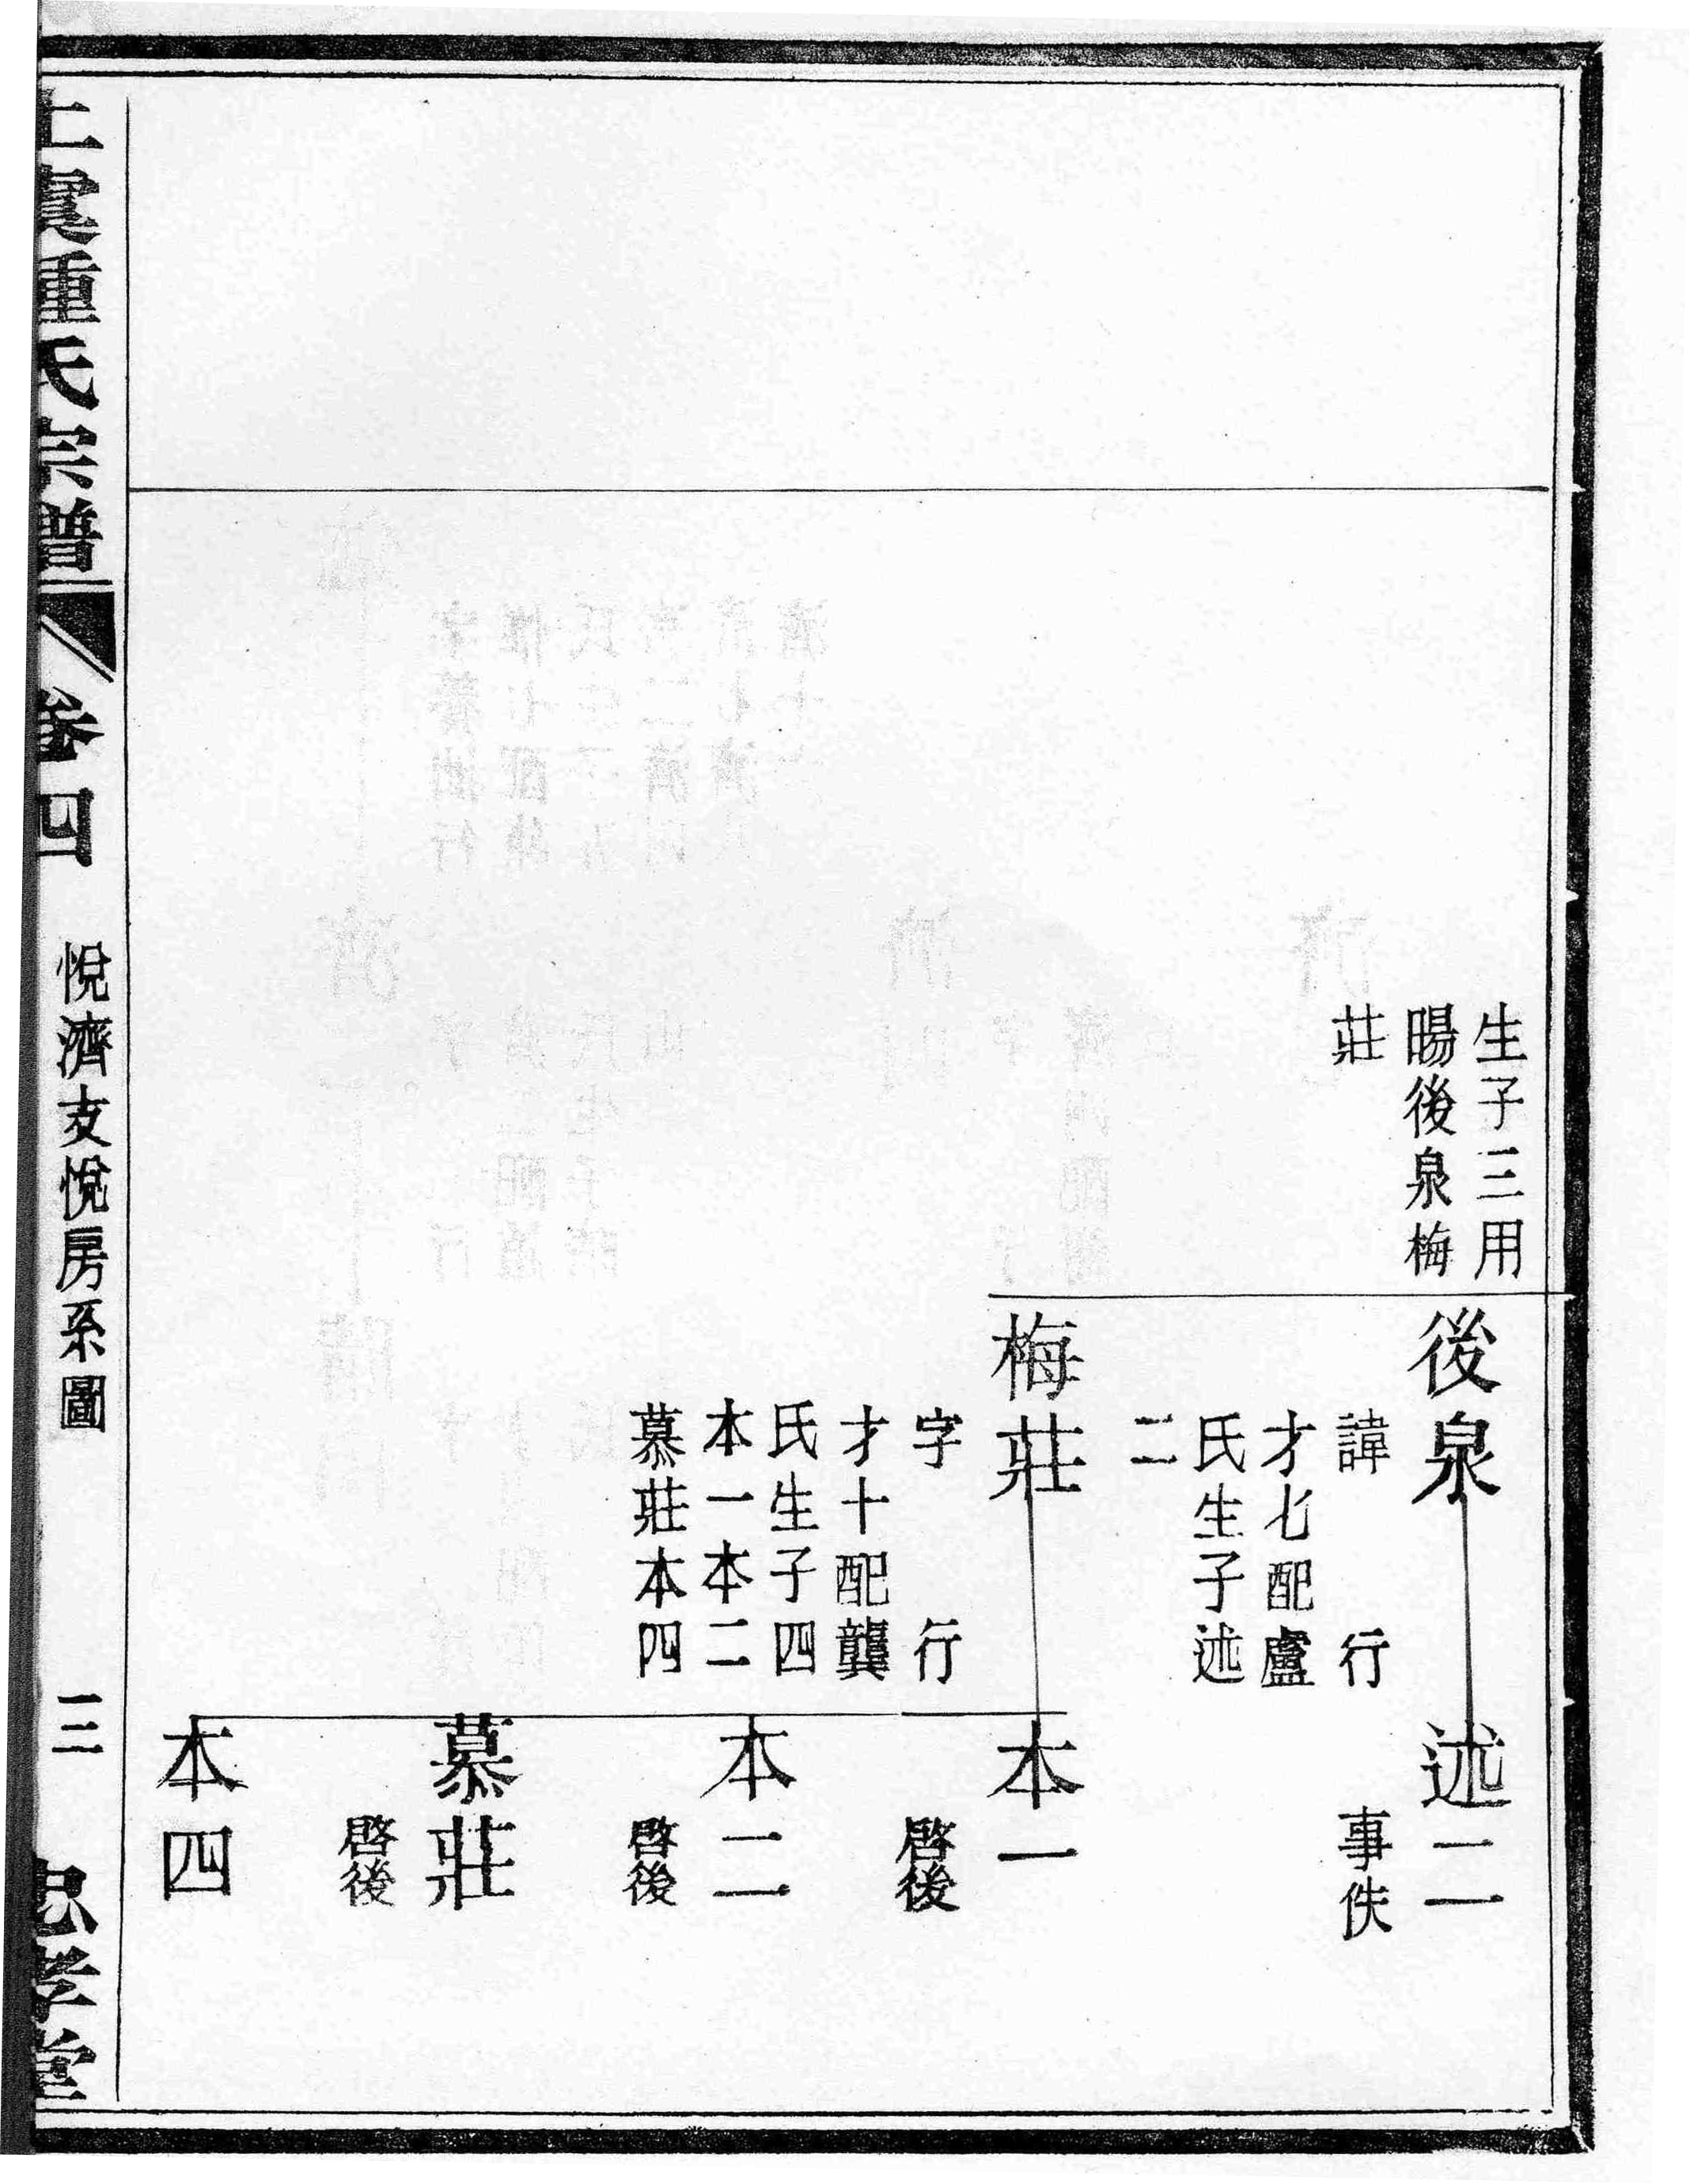 生子三用
暘後泉梅
莊
後泉
諱 行
才七配盧
氏生子述
二
述二
事佚
梅莊
字 行
才十配龔
氏生子四
本一本二
慕莊本四
本一
啓後
本二
啓後
慕莊
啓後
本四
上虞
氏宗譜
卷四
悅濟支悅房系圖
三
忠孝堂